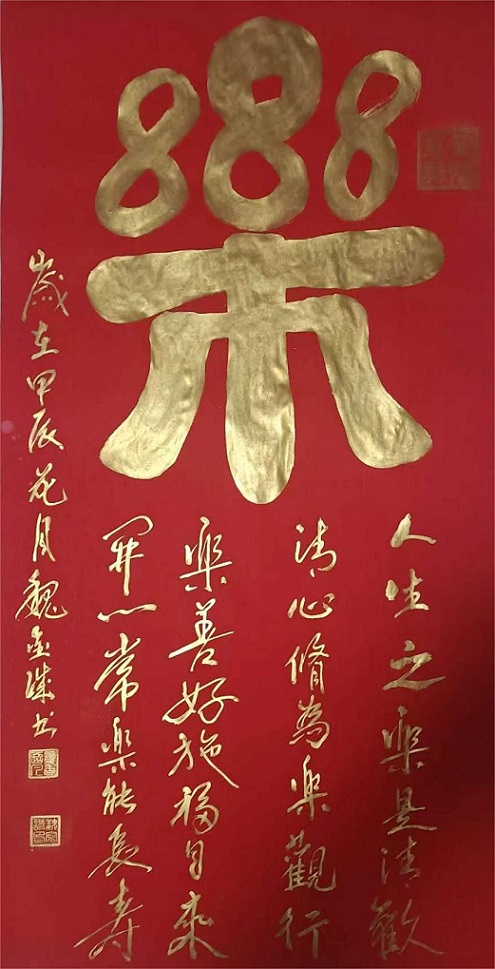 樂
人生之樂是清歡
清心脩為樂觀行
樂善好施福自來
開心常樂能長壽
歲在甲辰花月魏金城书